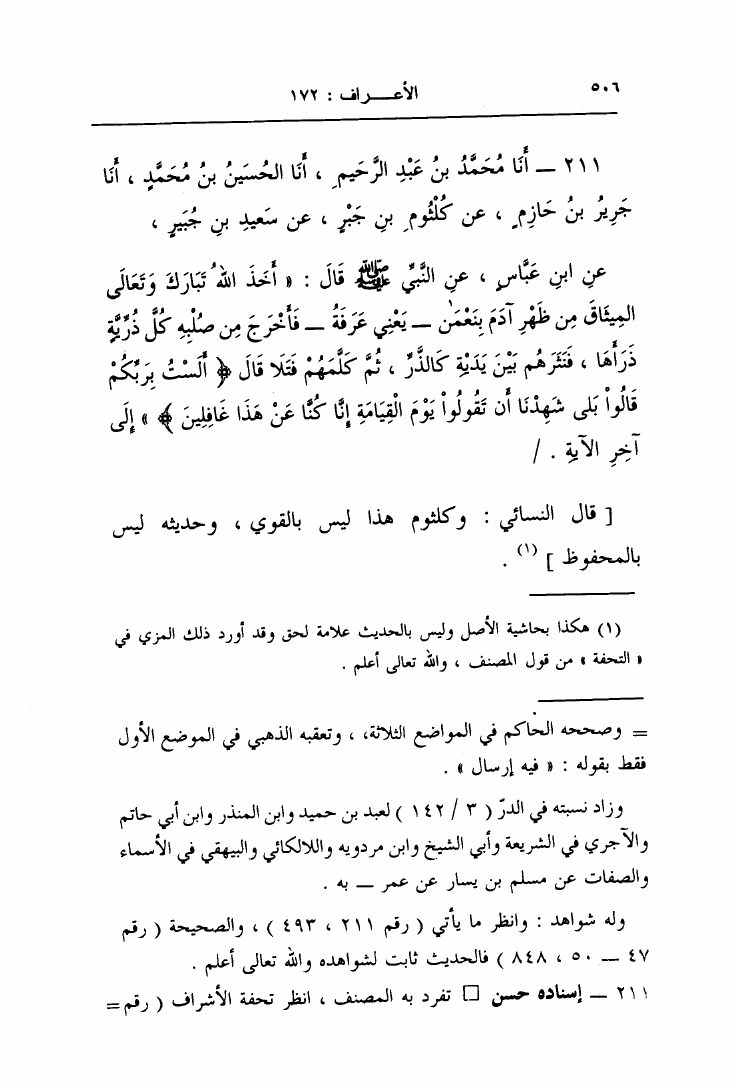 ٥٠٦
الأعـــراف : ١٧٢
٢١١ ــ أَنَا مُحَمَّدُ بنُ عَبْدِ الرَّحَيمِ ، أَنَا الحُسَينُ بنُ مُحَمَّدٍ ، أَنَا
جَرِيرُ بنُ حَازِمٍ ، عن كُلْثُومِ بنِ جَبْرٍ ، عن سَعيدِ بنِ جُبَيرٍ ،
عنِ ابنِ عَبَّاسٍ ، عنِ النَّبيِّ ﷺ قَالَ : « أَخَذَ اللهُ تَبَارَكَ وَتَعَالَى
المِيثَاقَ مِن ظَهْرِ آدَمَ بِنَعْمَٰن ــ يَعْنِي عَرَفَةُ ــ فَأَخْرَجَ مِن صُلْبِهِ كُلَّ ذُرِّيَّةٍ
ذَرَأَهَا ، فَنَثَرهُم بَيْنَ يَدَيْة كَالذَّرِّ ، ثُمَّ كَلَّمَهُمْ فَتَلَا قَالَ ﴿ أَلَسْتُ بِرَبِّكُمْ
قَالُواْ بَلى شَهِدْنَا أَن تَقُولُواْ يَوْمَ الْقِيَامَةِ إِنَّا كُنَّا عَنْ هَذَا غَافِلِينَ ﴾ » إِلَى
آخِرِ الآيةِ . /
[ قال النسائي : وكلثوم هذا ليس بالقوي ، وحديثه ليس
بالمحفوظ ] (١) .
(١) هكذا بحاشية الأصل وليس بالحديث علامة لحق وقد أورد ذلك المزي في
« التحفة » من قول المصنف ، والله تعالى أعلم .
= وصححه الحاكم في المواضع الثلاثة، ، وتعقبه الذهبي في الموضع الأول
فقط بقوله : « فيه إرسال » .
وزاد نسبته في الدرّ ( ٣ / ١٤٢ ) لعبد بن حميد وابن المنذر وابن أبي حاتم
والآجري في الشريعة وأبي الشيخ وابن مردويه واللالكائي والبيهقي في الأسماء
والصفات عن مسلم بن يسار عن عمر ــ به .
وله شواهد : وانظر ما يأتي ( رقم ٢١١ ، ٤٩٣ ) ، والصحيحة ( رقم
٤٧ ــ ٥٠ ، ٨٤٨ ) فالحديث ثابت لشواهده والله تعالى أعلم .
٢١١ ــ إسناده حسن □ تفرد به المصنف ، انظر تحفة الأشراف ( رقم =